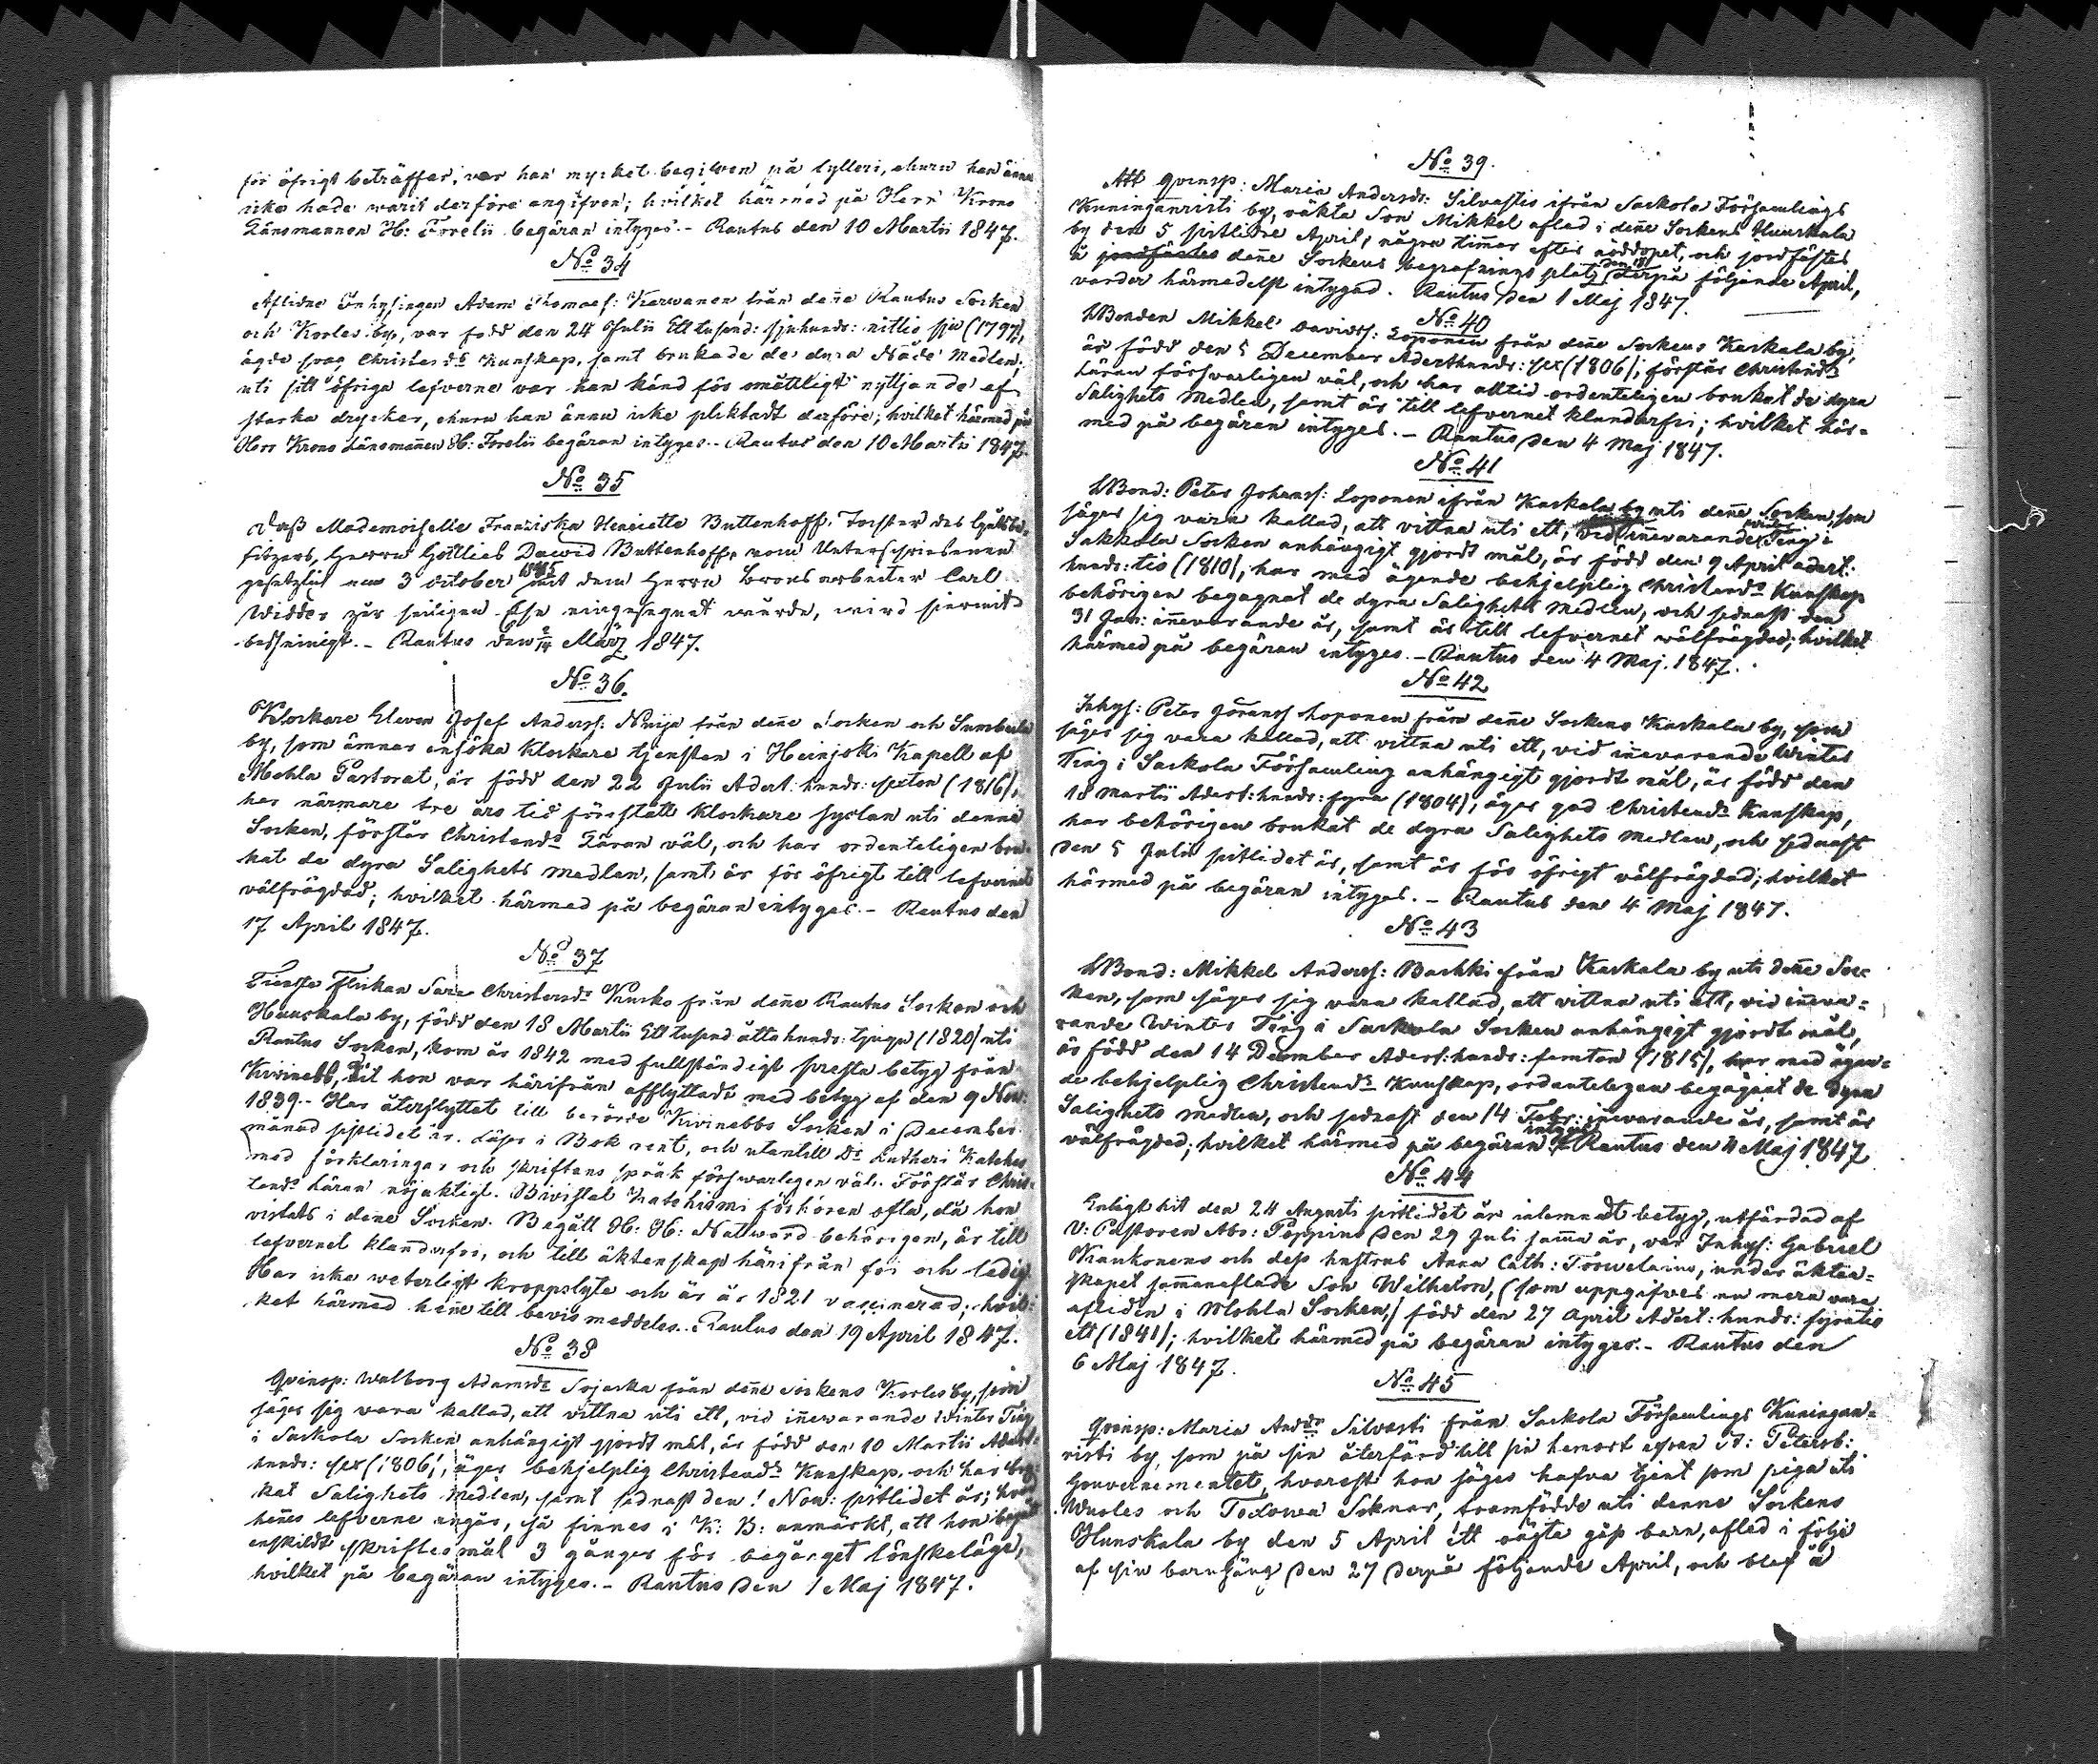 för öfrigt beträffar, var han mycket begifven på fylleri, ehuru han ännu
icke hade warit derföre angifven; hvilket härmed på Herr Krono
Länsmannen H: Forelii begäran intyges. - Rautus den 10 Martii 1847.
No 34
Aflidne Inhysingen Adam Thomasf: Karwanen, från deñe Rautus Socken
och Korles by, var född den 24 Julii Ett tusend: sjuhund: nittio sju (1797),
ägde svag Christends Kunskap, samt brukade de dyra Nåde Medlen;
uti sitt öfriga lefverne var han känd för omåttligt nyttjande af
starka drycker, ehuru han ännu icke pliktadt derföre; hvilket härmed på
Herr Krono Länsmañen H: Forelii begäran intyges. - Rautus den 10 Martii 1847.
No 35
Daß Mademoiselle Franziska Henriette Buttenhoff, Tochter des Gutsbe-
sitzers, Herrn Gottlieb Dawid Buttenhoff, vom Unterschriebenen
gesetzlich am 3 October 1845 mit dem Herrn Carl
Widder zur seeligen Ehe eingesegnet wurde, wird hiermit
bescheinigt. - Rautus den 2/14 März 1847.
No 36.
Klockare Eleven Josef Anderss: Nuija från deñe Socken och Sumbula
by, som ämnar ensöka Klockare tjensten i Heinjoki Kapell af
Mohla Pastorat, är född den 22 Julii Adert: hund: sexton (1816),
har närmare tre års tid förestått Klockare sysslan uti denne
Socken, förstår Christends Läran väl, och har ordenteligen bru-
kat de dyra Salighets medlen, samt är för öfrigt till lefvernet
välfrägdad; hvilket härmed på begäran intyges. - Rautus den
17 April 1847.
No 37
Tjenste Flickan Sara Christersdr Kunsko från deñe Rautus Socken och
Huuskala by, född den 18 Martii Ett tusend åtta hund: tjugu (1820) uti
Rautus Socken, kom år 1842 med fullständigt Presta betyg från
Kivinebb, dit hon var härifrån afflyttade med betyg af den 9 Nov:
1839. - Har återflyttat till berörde Kivinebbs Socken i December
månad sistlidet år. Läser i Bok rent, och utantill Dr Lutheri Kateches
med förklaringar och skriftens språk försvarligen väl. Förstår Chris-
tends läran nöjaktigt. Bivistat Katechismi förhören ofta, då hon
vistats i deñe Socken. Begått H: H: Nattward behörigen, är till
lefvernet klanderfri, och till äktenskap härifrån fri och ledig
Har icke weterligt kroppslyte och är år 1821 vaccinerad; hvil-
ket härmed heñe till bevis meddeles. - Rautus den 19 April 1847.
No 38
Qvinsp: Walborg Adamsdr Sojacka från deñe Sockens Korles by, som
säger sig wara kallad, att vittna uti ett, vid iñewarande Winter Ting
i Sackola Socken anhängigt gjordt mål, är född den 10 Martii Adert:
hund: sex (1806), äger behjelplig Christends Kunskap, och har bru-
kat Salighets medlen, samt sednast den 1 Nov: sistlidet år; hvad
heñes lefverne angår, så finnes i K: B: anmärkt, att hon begått
enskildt skriftesmål 3 gånger för begånget lönskeläge,
hvilket på begäran intyges. - Rautus den 1 Maj 1847.
No 39.
Att Qvinsp: Maria Andersdr: Silvastis ifrån Sackola Församlings
Kuninganristi by, oäkta Son Mikkel aflad i deñe Sockens Huuskala
by den 5 sistlidne April, några timar efter nöddopet, och jordfästes
å jordfästes deñe Sockens begrafnings plats den 18 derpå följande April,
varder härmedelst intygad. Rautus den 1 Maj 1847.
No 40
LBonden Mikkel Davidss: Loponen från deñe Sockens Kaskala by,
är född den 5 December Aderthund: sex (1806), förstår Christends
Läran försvarligen väl, och har alltid ordenteligen brukat de dyra
Salighets Medlen, samt är till lefvernet klanderfri; hvilket här-
med på begäran intyges. - Rautus den 4 Maj 1847.
No 41
LBond: Peter Johanss: Loponen ifrån Kaskala by uti deñe Socken, som
säger sig vara kallad, att vittna uti ett, vid iñevarande winter Ting i
Sakkola Socken anhängigt gjordt mål, är född den 9 April adert:
hund: tio (1810), har med ägende behjelplig Christends Kunskap
behörigen begagnat de dyra Salighets Medlen, och sednast den
31 Jan: iñevarande år, samt är till lefvernet wälfrägdad; hvilket
härmed på begäran intyges. - Rautus den 4 Maj. 1847.
No 42
Inhys: Peter Göranss Loponen från deñe Sockens Kaskala by, som
säger sig vara kallad, att vittna uti ett, vid iñevarande Winter
Ting i Sackola Församling anhängigt gjordt mål, är född den
18 Martii Adert: hund: fyra (1804), äger god Christends Kunskap,
har behörigen brukat de dyra Salighets Medlen, och sednast
den 5 Julii sistlidet år, samt är för öfrigt wälfrägdad; hvilket
härmed på begäran intyges. - Rautus den 4 Maj 1847.
No 43
LBond: Mikkel Anderss: Baschki från Kaskala by uti deñe Soc-
ken, som säger sig vara kallad, att vittna uti ett, vid iñeva-
rande Winter Ting i Sackola Socken anhängigt gjordt mål,
är född den 14 December Adert: hund: femton (1815), har med ägan-
de behjelplig Christends Kunskap, ordenteligen begagnat de dyra
Salighets medlen, och sednast den 14 Febr: iñevarande år, samt är
välfrägdad; hvilket härmed på begäran intyges. Rautus den 4 Maj 1847
No 44
Enligt hit den 24 Augusti sistlidet år inlemnadt betyg, utfärdad af
V: Pastoren Abr: Poppius den 29 Juli sama år, var Inhys: Gabriel
Kaukonens och dess hustrus Anna Cath: Torwelainen, under äkten-
skapet sammanaflade Son Wilhelm, (som uppgifves nu mera vara
afliden i Mohla Socken,) född den 27 April Adert: hund: fyratio
ett (1841); hvilket härmed på begäran intyges. - Rautus den
6 Maj 1847.
No 45
Qvinsp: Maria Andsdr Silvasti från Sackola Församlings Kuningan-
risti by, som på sin återfärd till sin hemort ifran St: Petersb:
Gouvernementet, hvarest hon säges hafva tjent som piga uti
Wuoles och Toxowa Soknar, framfödde uti denne Sockens
Huuskala by den 5 April ett oägta goss barn, aflad i följe
af sin barnsäng den 27 derpå följande April, och blef å